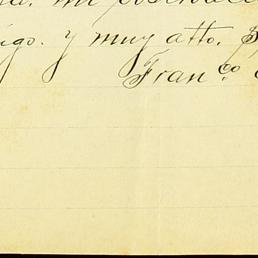 mi
igo. y muy atto. S
Fran.co